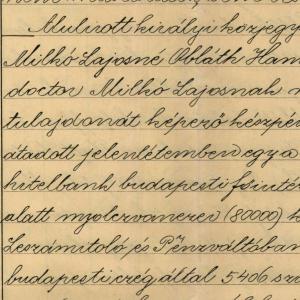 Mulirott királyi közjegy
Milkó Lajosné Obláth Han
doctor Milkó Lajosnak
tulajdonát képező készpén
átadott jelenlétemben egy a
hitelbank budapesti főinté
alatt nyolcvanezer (80000) k
Leszámitoló és Pénzváltóban
budapesti czég által 5406 sz